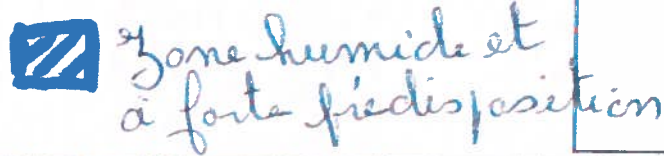 Zone humide et
à forte prédisposition